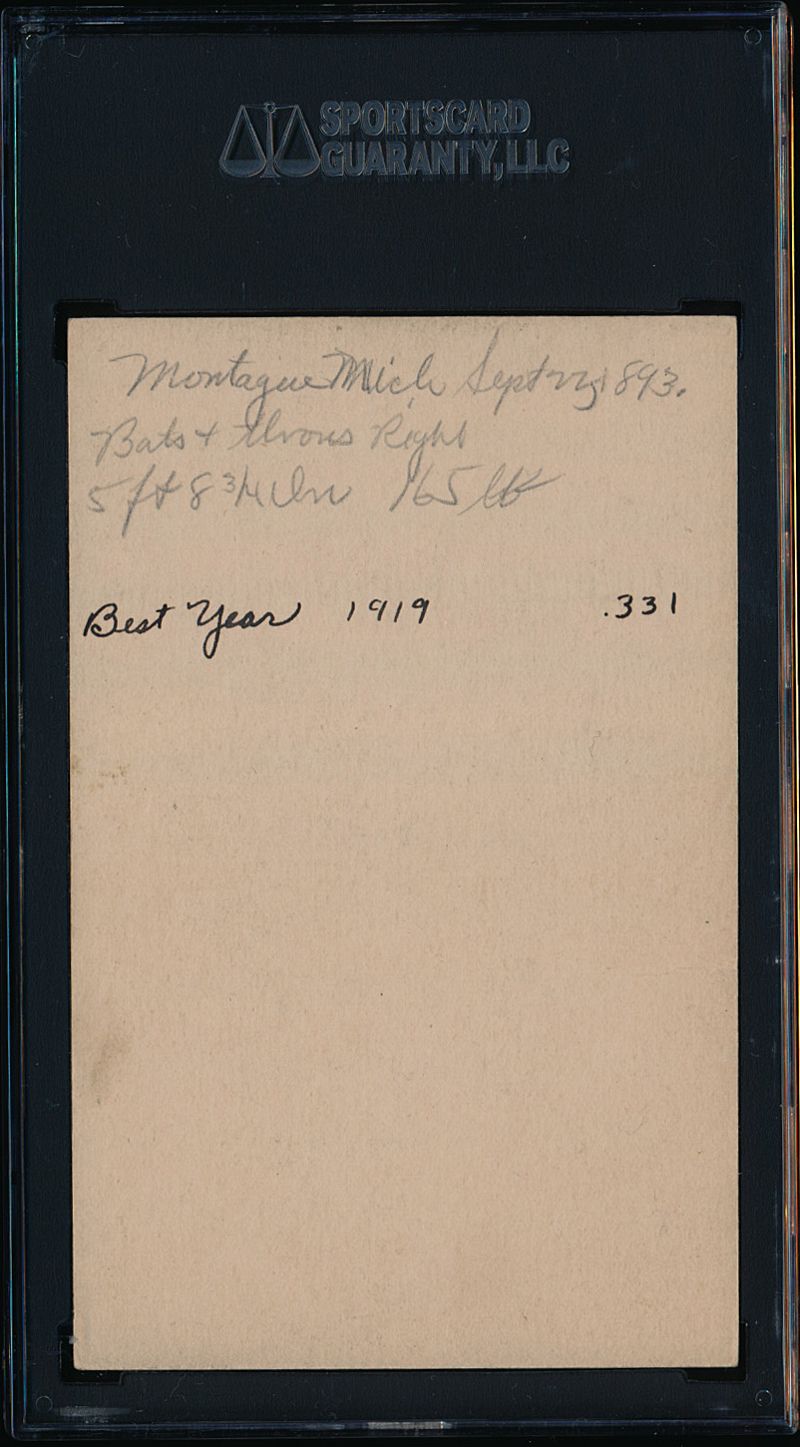 SPORTSCARD
GUARANTY, LLC
Montague Mich Sept 22, 1893.
Bats + throws Right
5 ft 8 3/4 in 165 lb
Best Year 1919 .331